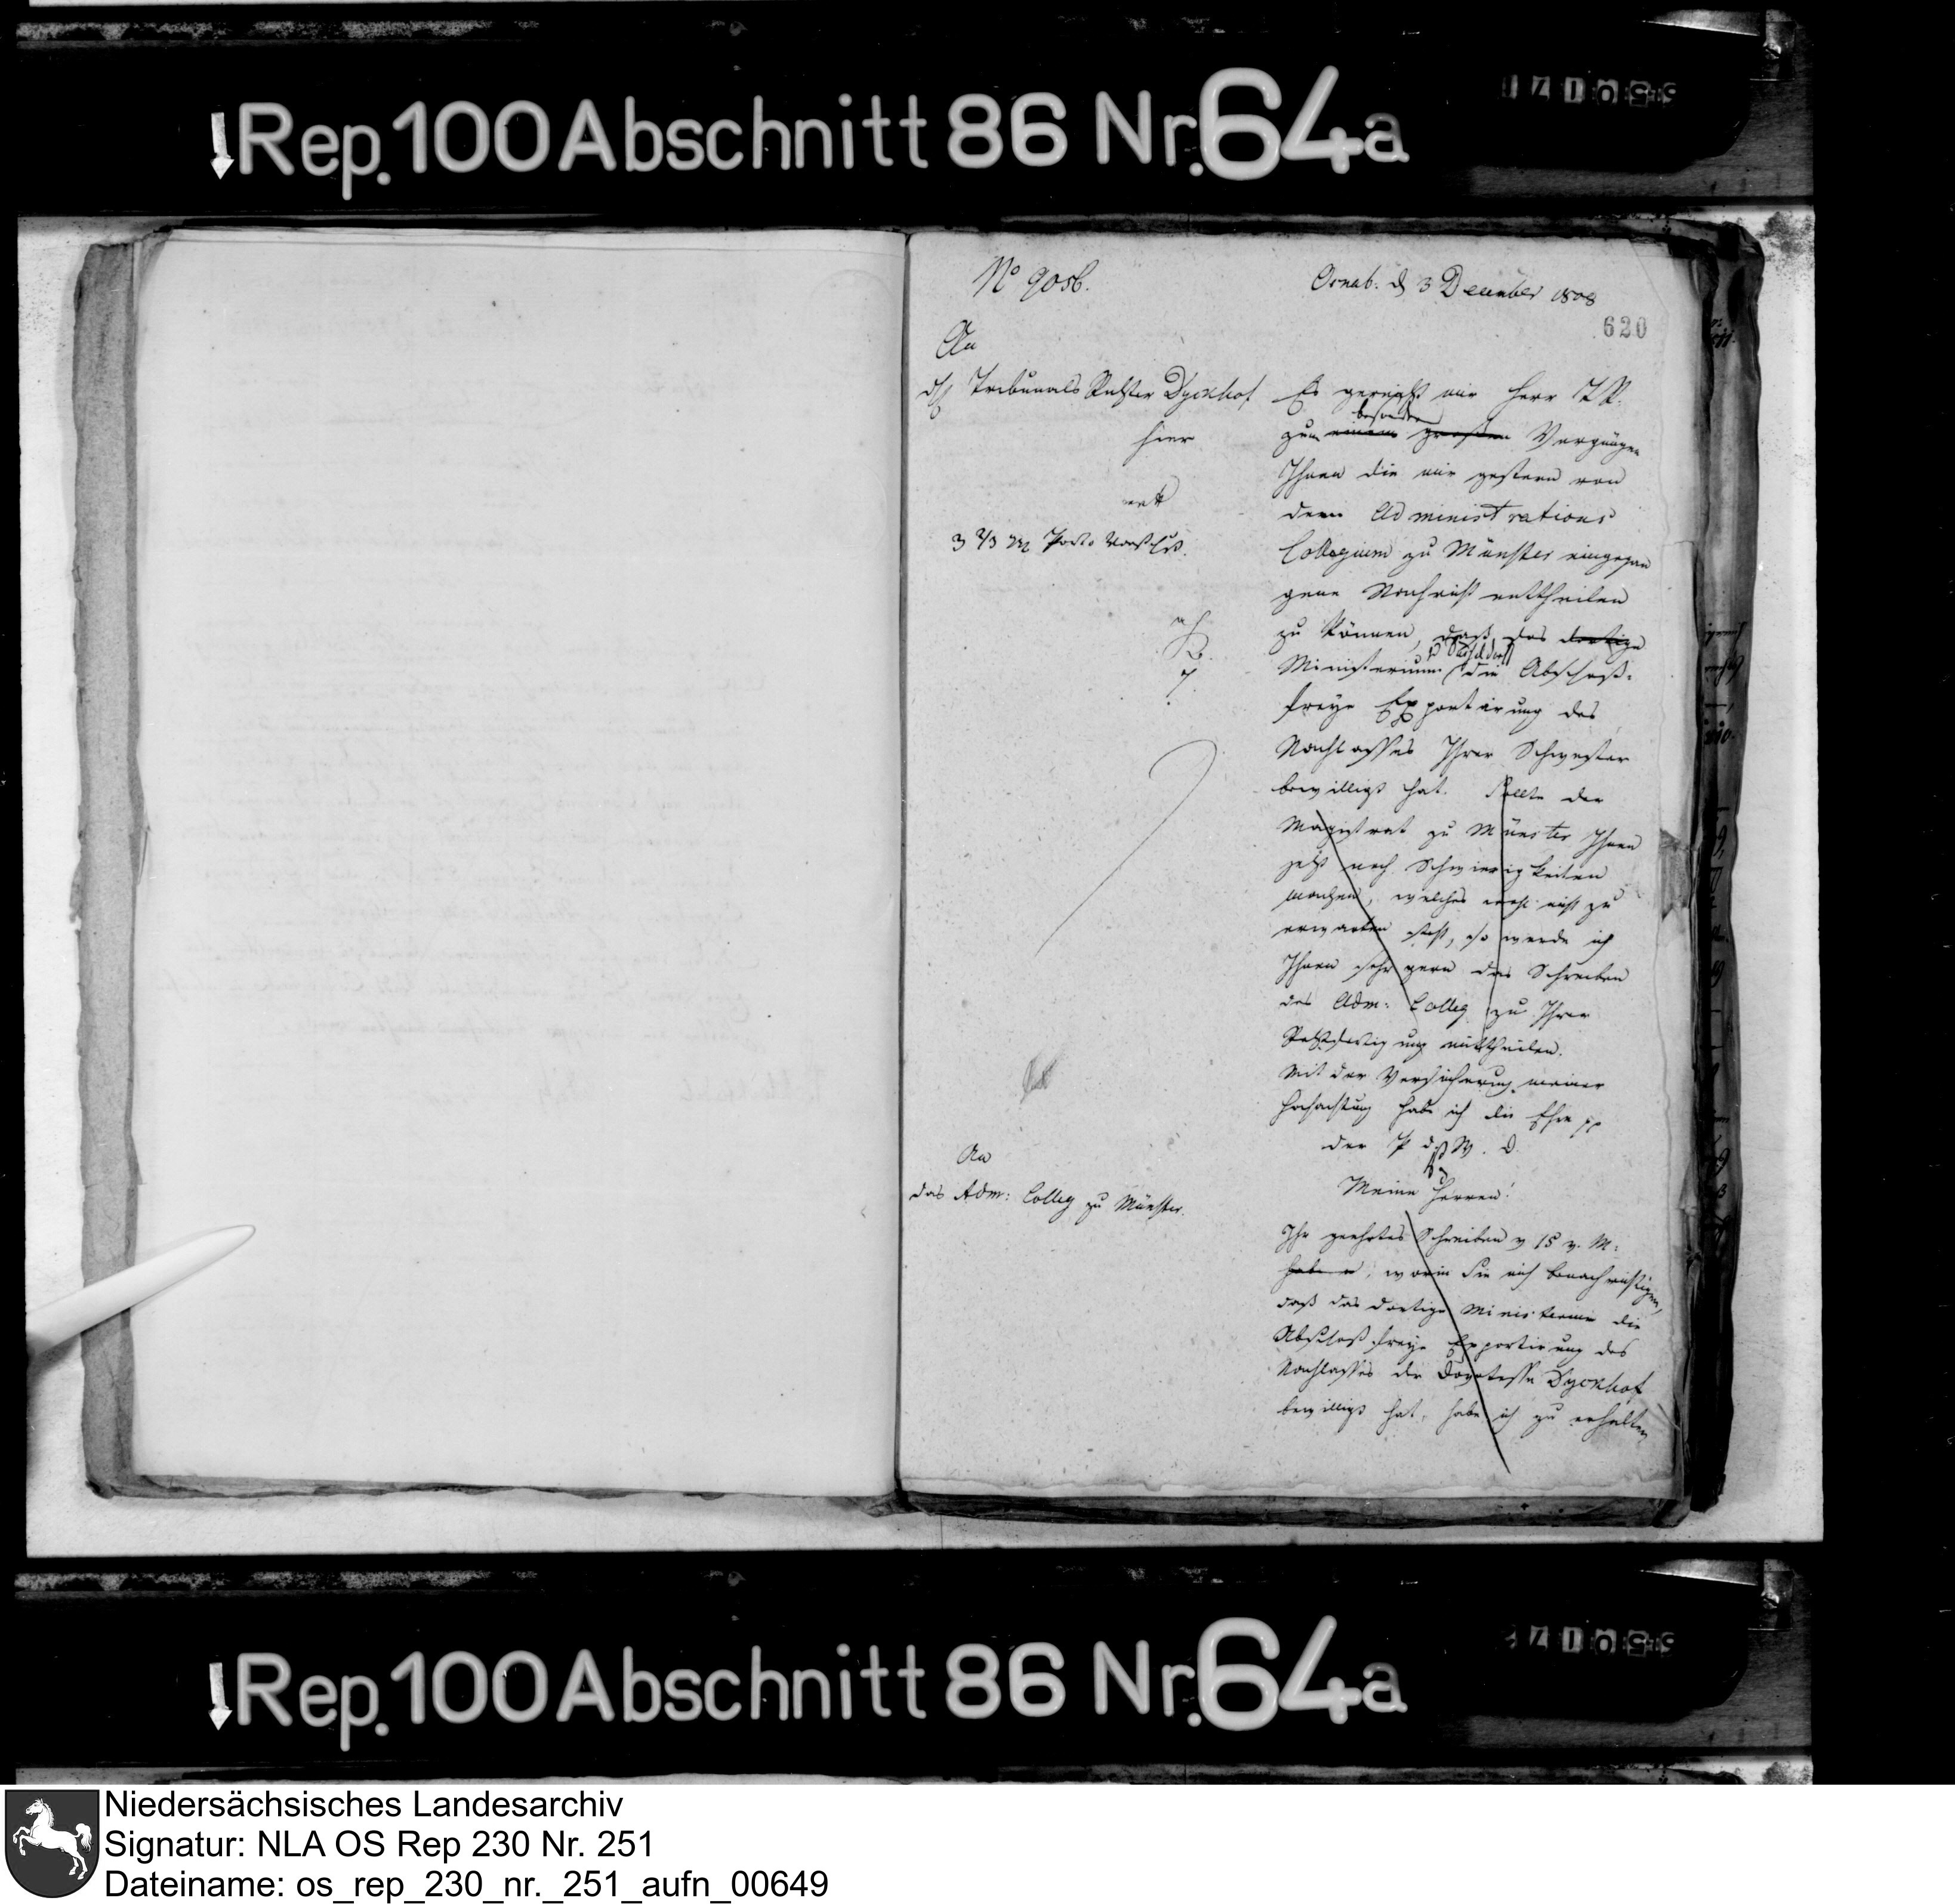 Rep. 100 Abschnitt 86 Nr. 64a
No 9056.
Osnab. d 3 December 1808
620
An
Tribunals Richter Dyckhof
hier
3 2/3 Porto Vorschuß.
Es gereicht mir Herr T. R.
zum einem großen besondern Vergnügen
Ihnen die mir gestern von
dem Administrations
Collegium zu Münster eingegan
gene Nachricht mittheilen
zu können, daß das dortige
Ministerium zu Düsseldorf die Abschoß-
freye Exportirung des
Nachlasses Ihrer Schwester
bewilligt hat. Sollte der
Magistrat zu Münster Ihnen
jetzt noch Schwierigkeiten
machen, welches wohl nicht zu
erwarten steht, so werde ich
Ihnen sehr gern das Schreiben
des Adm: Colleg zu Ihrer
Rechtfertigung mittheilen.
Mit der Versicherung meiner
Hochachtung habe ich die Ehre pp
der P d W. D.
An
das Adm: Colleg zu Münster.
Meine Herren!
Ihr geehrtes Schreiben v 15 v. M:
haben, worin Sie mich benachrichtigen,
daß das dortige Ministerium die
Abschoß freye Exportirung des
Nachlasses der Dyckhof
bewilligt hat, habe ich zu erhalten
Rep. 100 Abschnitt 86 Nr. 64a
Niedersächsisches Landesarchiv
Signatur: NLA OS Rep 230 Nr. 251
Dateiname: os_rep_230_nr._251_aufn_00649